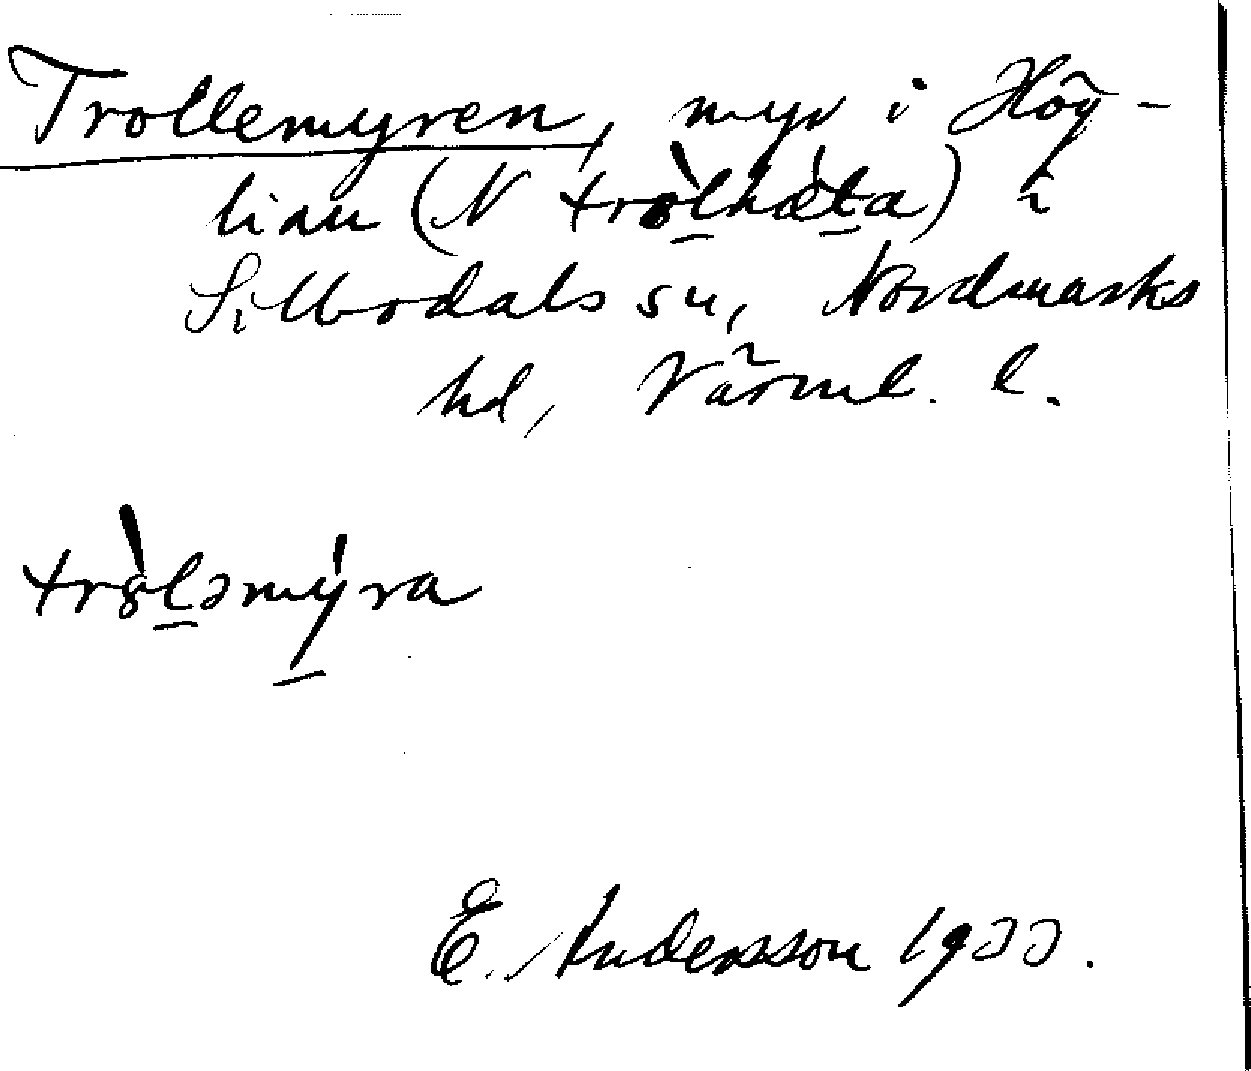 Trollemyren, myr i Hög-
lian (N trölhäta) i
Sillbodals sn, Nordmarks
hd, Värml. l.
trölǝmýra
E. Andersson 1933.